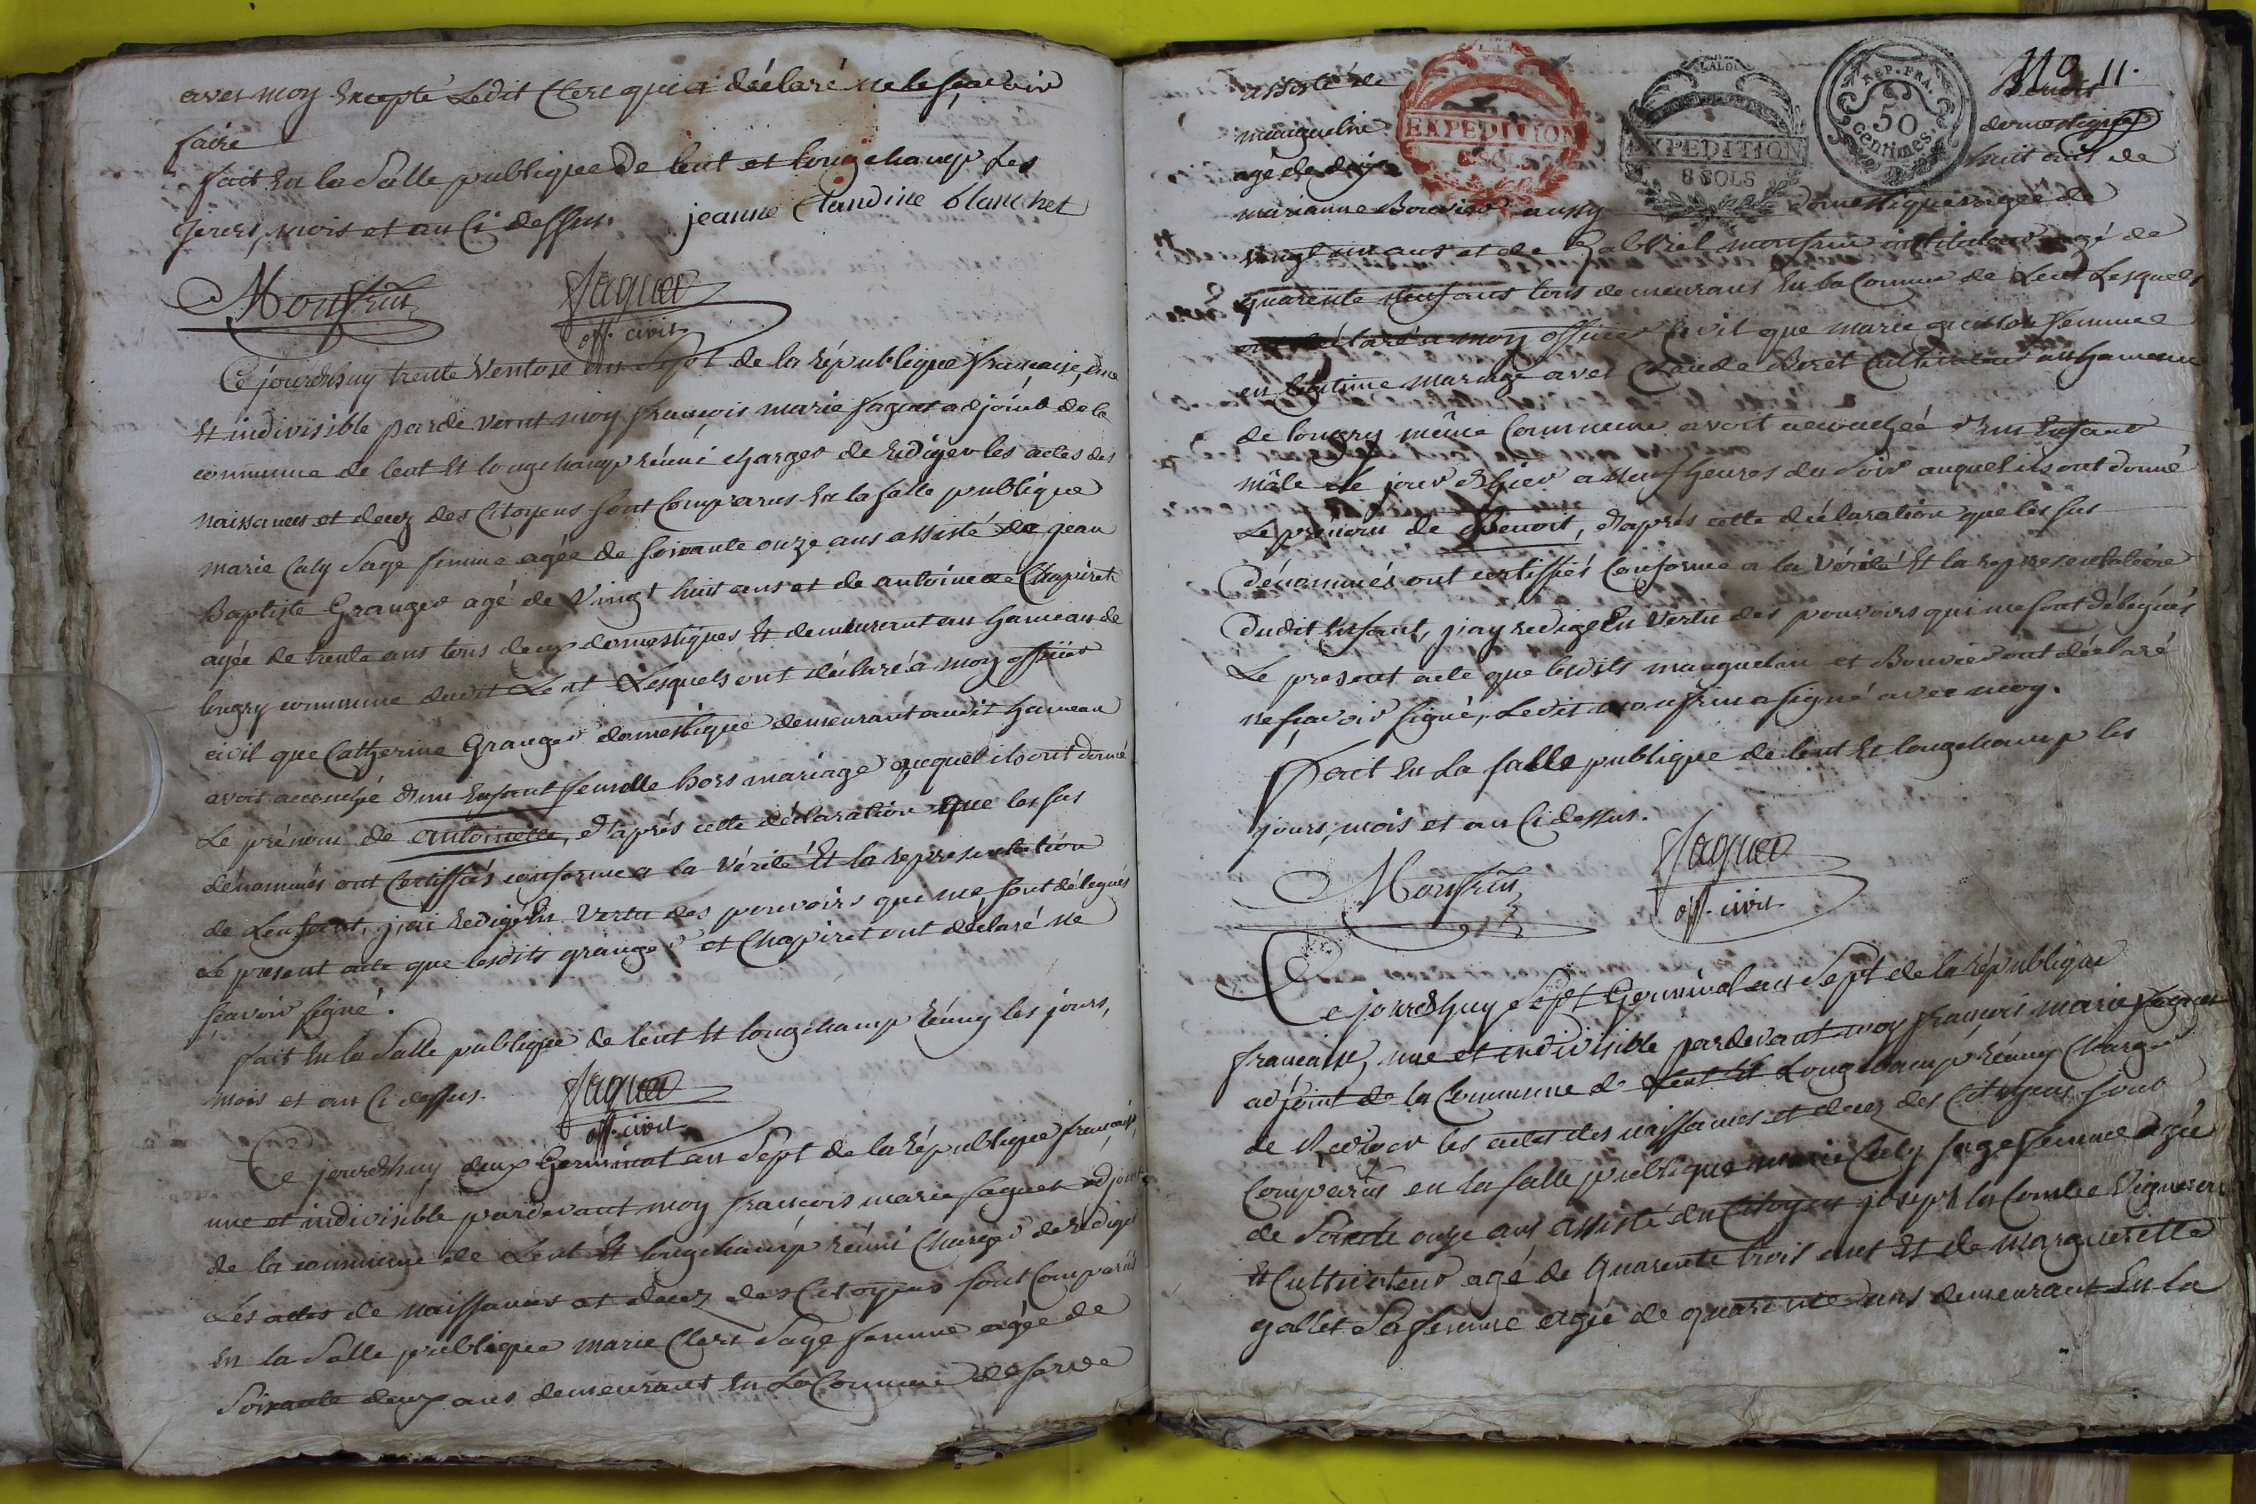 avec moy Excepté Ledit Clerc qui a déclaré ne le sçavoir
faire
fait En la Salle publique de lent et longchamp Les
jours, mois et an Ci dessus. jeanne Claudine blanchet
Monfrin
Jaguer
off. civil
Ce jourdhuy trente Ventose an Sept de la République française, une
Et indivisible par devant moy françois marie Jaguer adjoint de la
commune de lent Et longchamp réuni charger de Rediger les actes des
naissances et decez des Citoyens sont Comparus En la salle publique
marie Caty Sage femme agée de soixante onze ans assisté de jean
Baptiste Granger agé de Vingt huit ans et de antoinette Chapiret
agée de trente ans tous deux domestiques Et demeurant au hameau de
longry commune dudit Lent Lesquels ont déclaré a moy officier
civil que Catherine Granger domestique demeurant audit hameau
avoit accouché d'un Enfant femelle hors mariage auquel ils ont donné
Le prénom de antoinette, d'après cette déclaration que les sus
dénommés ont Certiffiés conforme a la Vérité Et la représentation
de Lenfant, j'ai Redigé En Vertu des pouvoirs qui me sont délegués
Le present acte que lesdits granger et Chapiret ont déclaré ne
sçavoir signé.
fait En la Salle publique de lent Et longchamp Réuny les jours,
mois et an Ci dessus.
Jaguer
off. civil
Ce jourdhuy deux Germinal an Sept de la République française,
une et indivisible pardevant moy françois marie Jaguer adjoint
de la commune de Lent Et longchamp réuni Charger de rediger
Les actes de naissances et decez des Citoyens sont Comparus
En la Salle publique marie Clerc Sage femme agée de
Soixante deux ans demeurant En La Commune de Serva
11.
assisté de Benoit
EXPEDITION
8 SOLS
EXPEDITION
8 SOLS
REP. FRA.
50
centimes.
mauguelin domestique
agé de dix huit ans de
marianne Bouvier aussy domestique agée de
vingt un ans et de gabriel monfrin instituteur agé de
quarente neuf ans tous demeurans En la Comune de Lent Lesquels
ont déclaré a moy officier Civil que marie femme
en légitime mariage avec Claude Buret Cultivateur au hameau
de longry même Commune avoit accouchée d'un Enfant
mâle le jour d'hier a Neuf heures du Soir auquel ils ont donné
Le prénom de Benoit, d'après cette déclaration que les sus
dénommés ont certiffiés Conforme a la Vérité Et la représentation
dudit Enfant, j'ay redigé En Vertu des pouvoirs qui me sont délegués
Le present acte que lesdits mauguelin et Bouvier ont déclaré
ne sçavoir signé, Ledit monfrin a signé avec moy.
Fait En La salle publique de lent Et longchamp les
jours, mois et an Ci dessus.
Monfrin
Jaguer
off. civil
Ce jourdhuy Sept Germinal an Sept de la République
française, une et indivisible pardevant moy françois marie Jaguer
adjoint de la Commune de Lent Et Longchamp Réuny Charger
de Rediger les actes des naissances et decez des Citoyens sont
Comparus en la salle publique marie Caty sage femme agée
de Soixante onze ans assisté du Citoyen joseph la Combe Vigneron
Et Cultivateur agé de Quarente trois ans Et de marguerette
gallet Sa femme agée de quarente ans demeurant En la